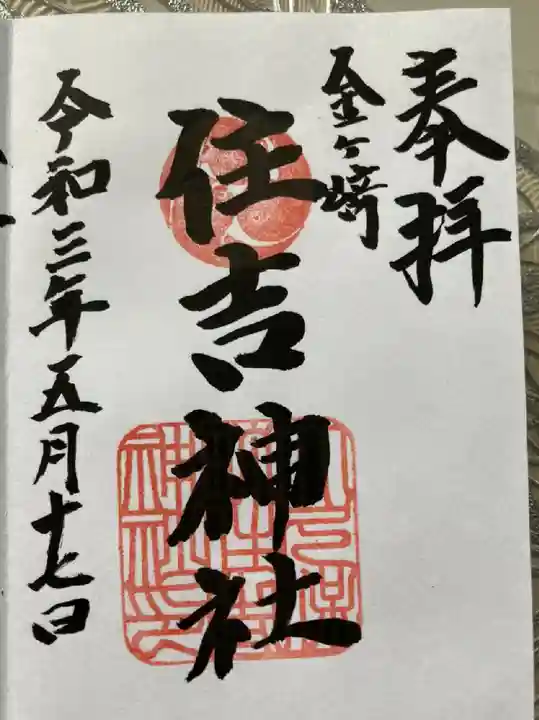 奉拝
金ヶ﨑
住吉神社
令和三年五月十七日